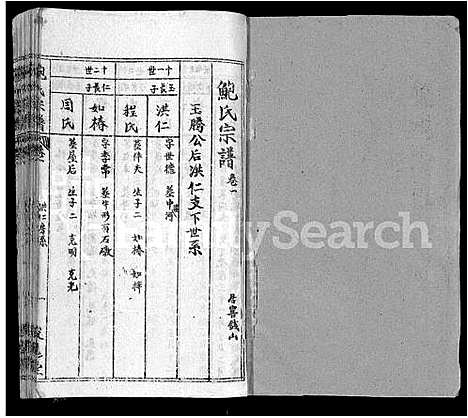 鮑氏宗譜 卷一
居窖錢山
玉騰公后洪仁支下世系
十一世
玉長子
洪仁
字世德 葬中河
程氏
葬仵大 生子二 如椿 如梓
十二世
仁長子
如椿
字李常 葬牛形有石墩
周氏
葬屋后 生子二 克明 克光
FamilySearch